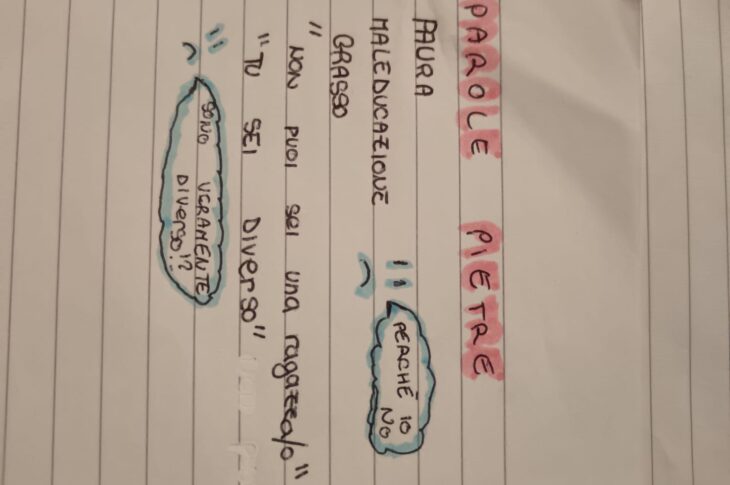 PAROLE PIETRE
PAURA
MALEDUCAZIONE
GRASSO
PERCHÉ IO
NO
"NON PUOI SEI una ragazza/o"
"TU SEI Diverso"
SONO VERAMENTE
Diverso!?